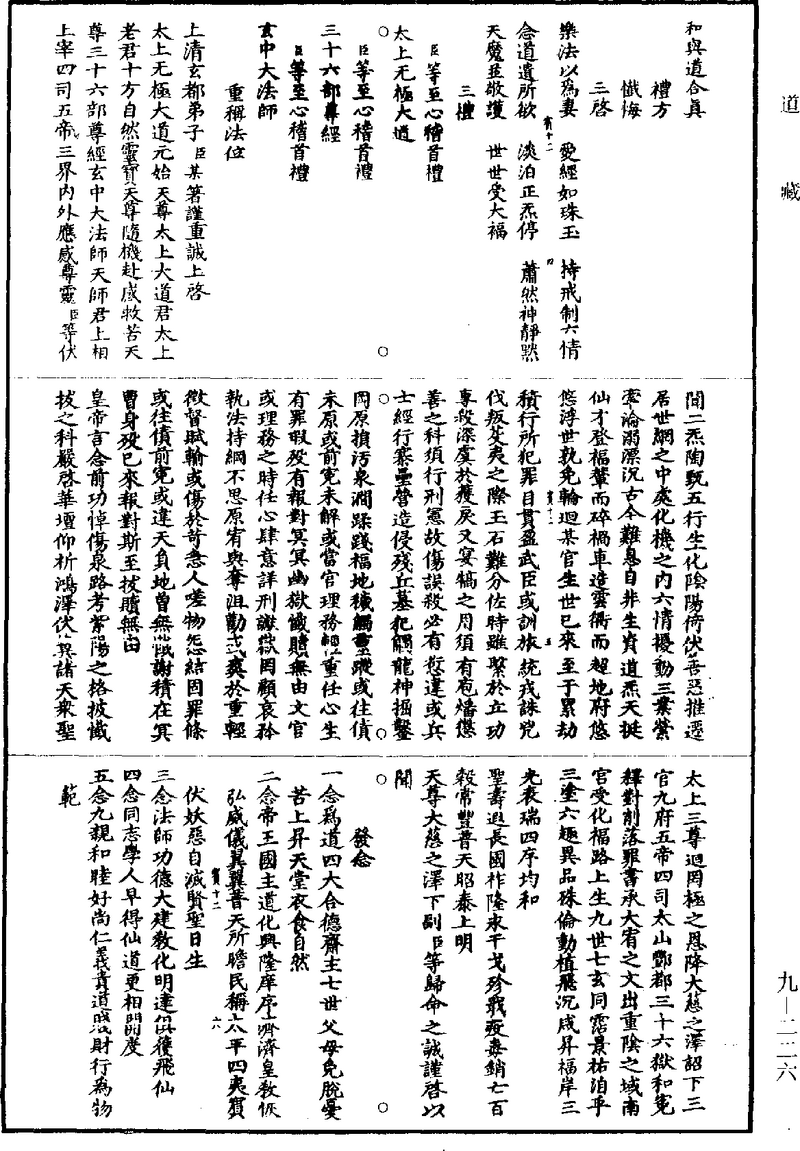 道藏
和與道合真
禮方
懺悔
三啓
樂法以為妻　愛經如珠玉　持戒制六情
念道遣所欲　淡泊正炁停　蕭然神靜默
天魔並敬護　世世受大福
三禮
臣等至心稽首禮
太上无極大道
臣等至心稽首禮
三十六部尊經
臣等至心稽首禮
玄中大法師
重稱法位
上清玄都弟子臣某等謹重誠上啓
太上无極大道元始天尊太上大道君太上
老君十方自然靈寶天尊隨機赴感救苦天
尊三十六部尊經玄中大法師天師君上相
上宰四司五帝三界内外應感尊靈臣等伏
聞二炁陶甄五行生化陰陽倚伏善惡推遷
居世網之中處化機之内六情擾動三業縈
纏淪溺漂沉古今難息自非生資道炁天挺
仙才登福輦而碎禍車造雲衢而超地府悠
悠浮世孰免輪迴某官生世已來至于累劫
積行所犯罪目貫盈武臣或訓旅統戎誅兇
伐叛芟夷之際玉石難分佐時雖繫於立功
專殺深虞於獲戾又宴犒之用須有庖燔懲
善之科須行刑憲故傷誤殺必有愆違或兵
士經行寨壘營造侵殘丘墓犯觸龍神掘鑿
岡原損污泉澗蹂踐福地穢觸靈蹤或往債
未原或前冤未解或當官理務輕重任心生
有罪瑕歿有報對冥冥幽獄懺贖無由文官
或理務之時任心肆意詳刑讞獄罔顧哀矜
執法持綱不思原宥與奪沮勸或爽於重輕
徵督賦輸或傷於苛急人嗟物怨結固罪條
或往債前冤或違天負地曾無懺謝積在冥
曹身歿已來報對斯至拔贖無由
皇帝言念前功悼傷泉路考紫陽之格披懺
拔之科嚴啓華壇仰祈鴻澤伏冀諸天衆聖
太上三尊迴罔極之恩降大慈之澤詔下三
官九府五帝四司太山酆都三十六獄和冤
釋對削落罪書承大宥之文出重陰之域南
宮受化福路上生九世七玄同霑景祐洎乎
三塗六趣異品殊倫動植飛沉咸昇福岸三
光表瑞四序均和
聖壽遐長國祚隆永干戈殄戢疫毒銷亡百
穀常豐普天昭泰上明
天尊大慈之澤下副臣等歸命之誠謹啓以
聞
發念
一念爲道四大合德齋主七世父母免脫憂
苦上昇天堂衣食自然
二念帝王國主道化興隆庠序濟濟皇教恢
弘威儀翼翼普天所瞻民稱太平四夷賓
伏妖惡自滅賢聖日生
三念法師功德大建教化明達俱獲飛仙
四念同志學人早得仙道更相開度
五念九親和睦好尚仁義貴道賤財行為物
範
九—二二六